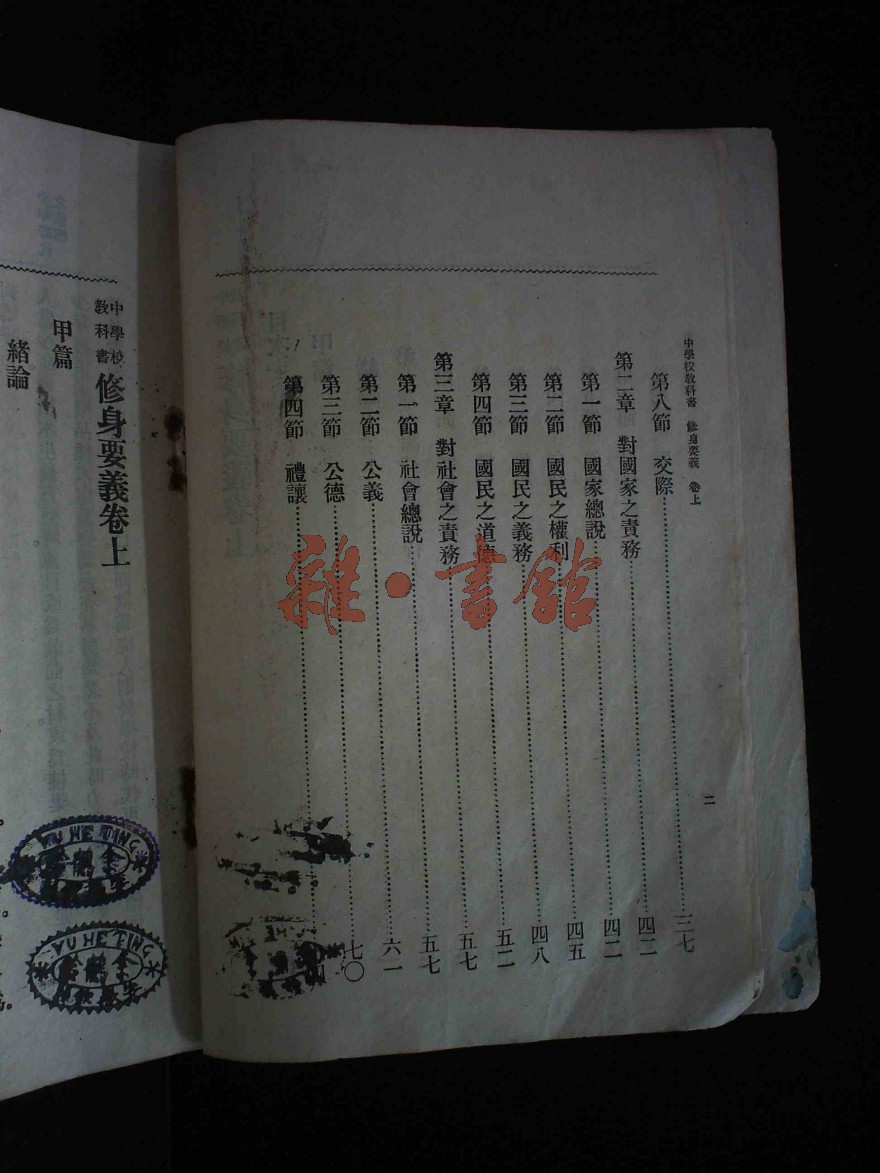 中學校教科書 修身要義 卷上
二
第八節 交際 三七
第二章 對國家之責務 四二
第一節 國家總說 四二
第二節 國民之權利 四五
第三節 國民之義務 四八
第四節 國民之道德 五二
第三章 對社會之責務 五七
第一節 社會總說 五七
第二節 公義 六一
第三節 公德 七〇
第四節 禮讓
雜·書館
中學校
教科書
修身要義卷上
甲篇
緒論
YU HE TING
YU HE TING